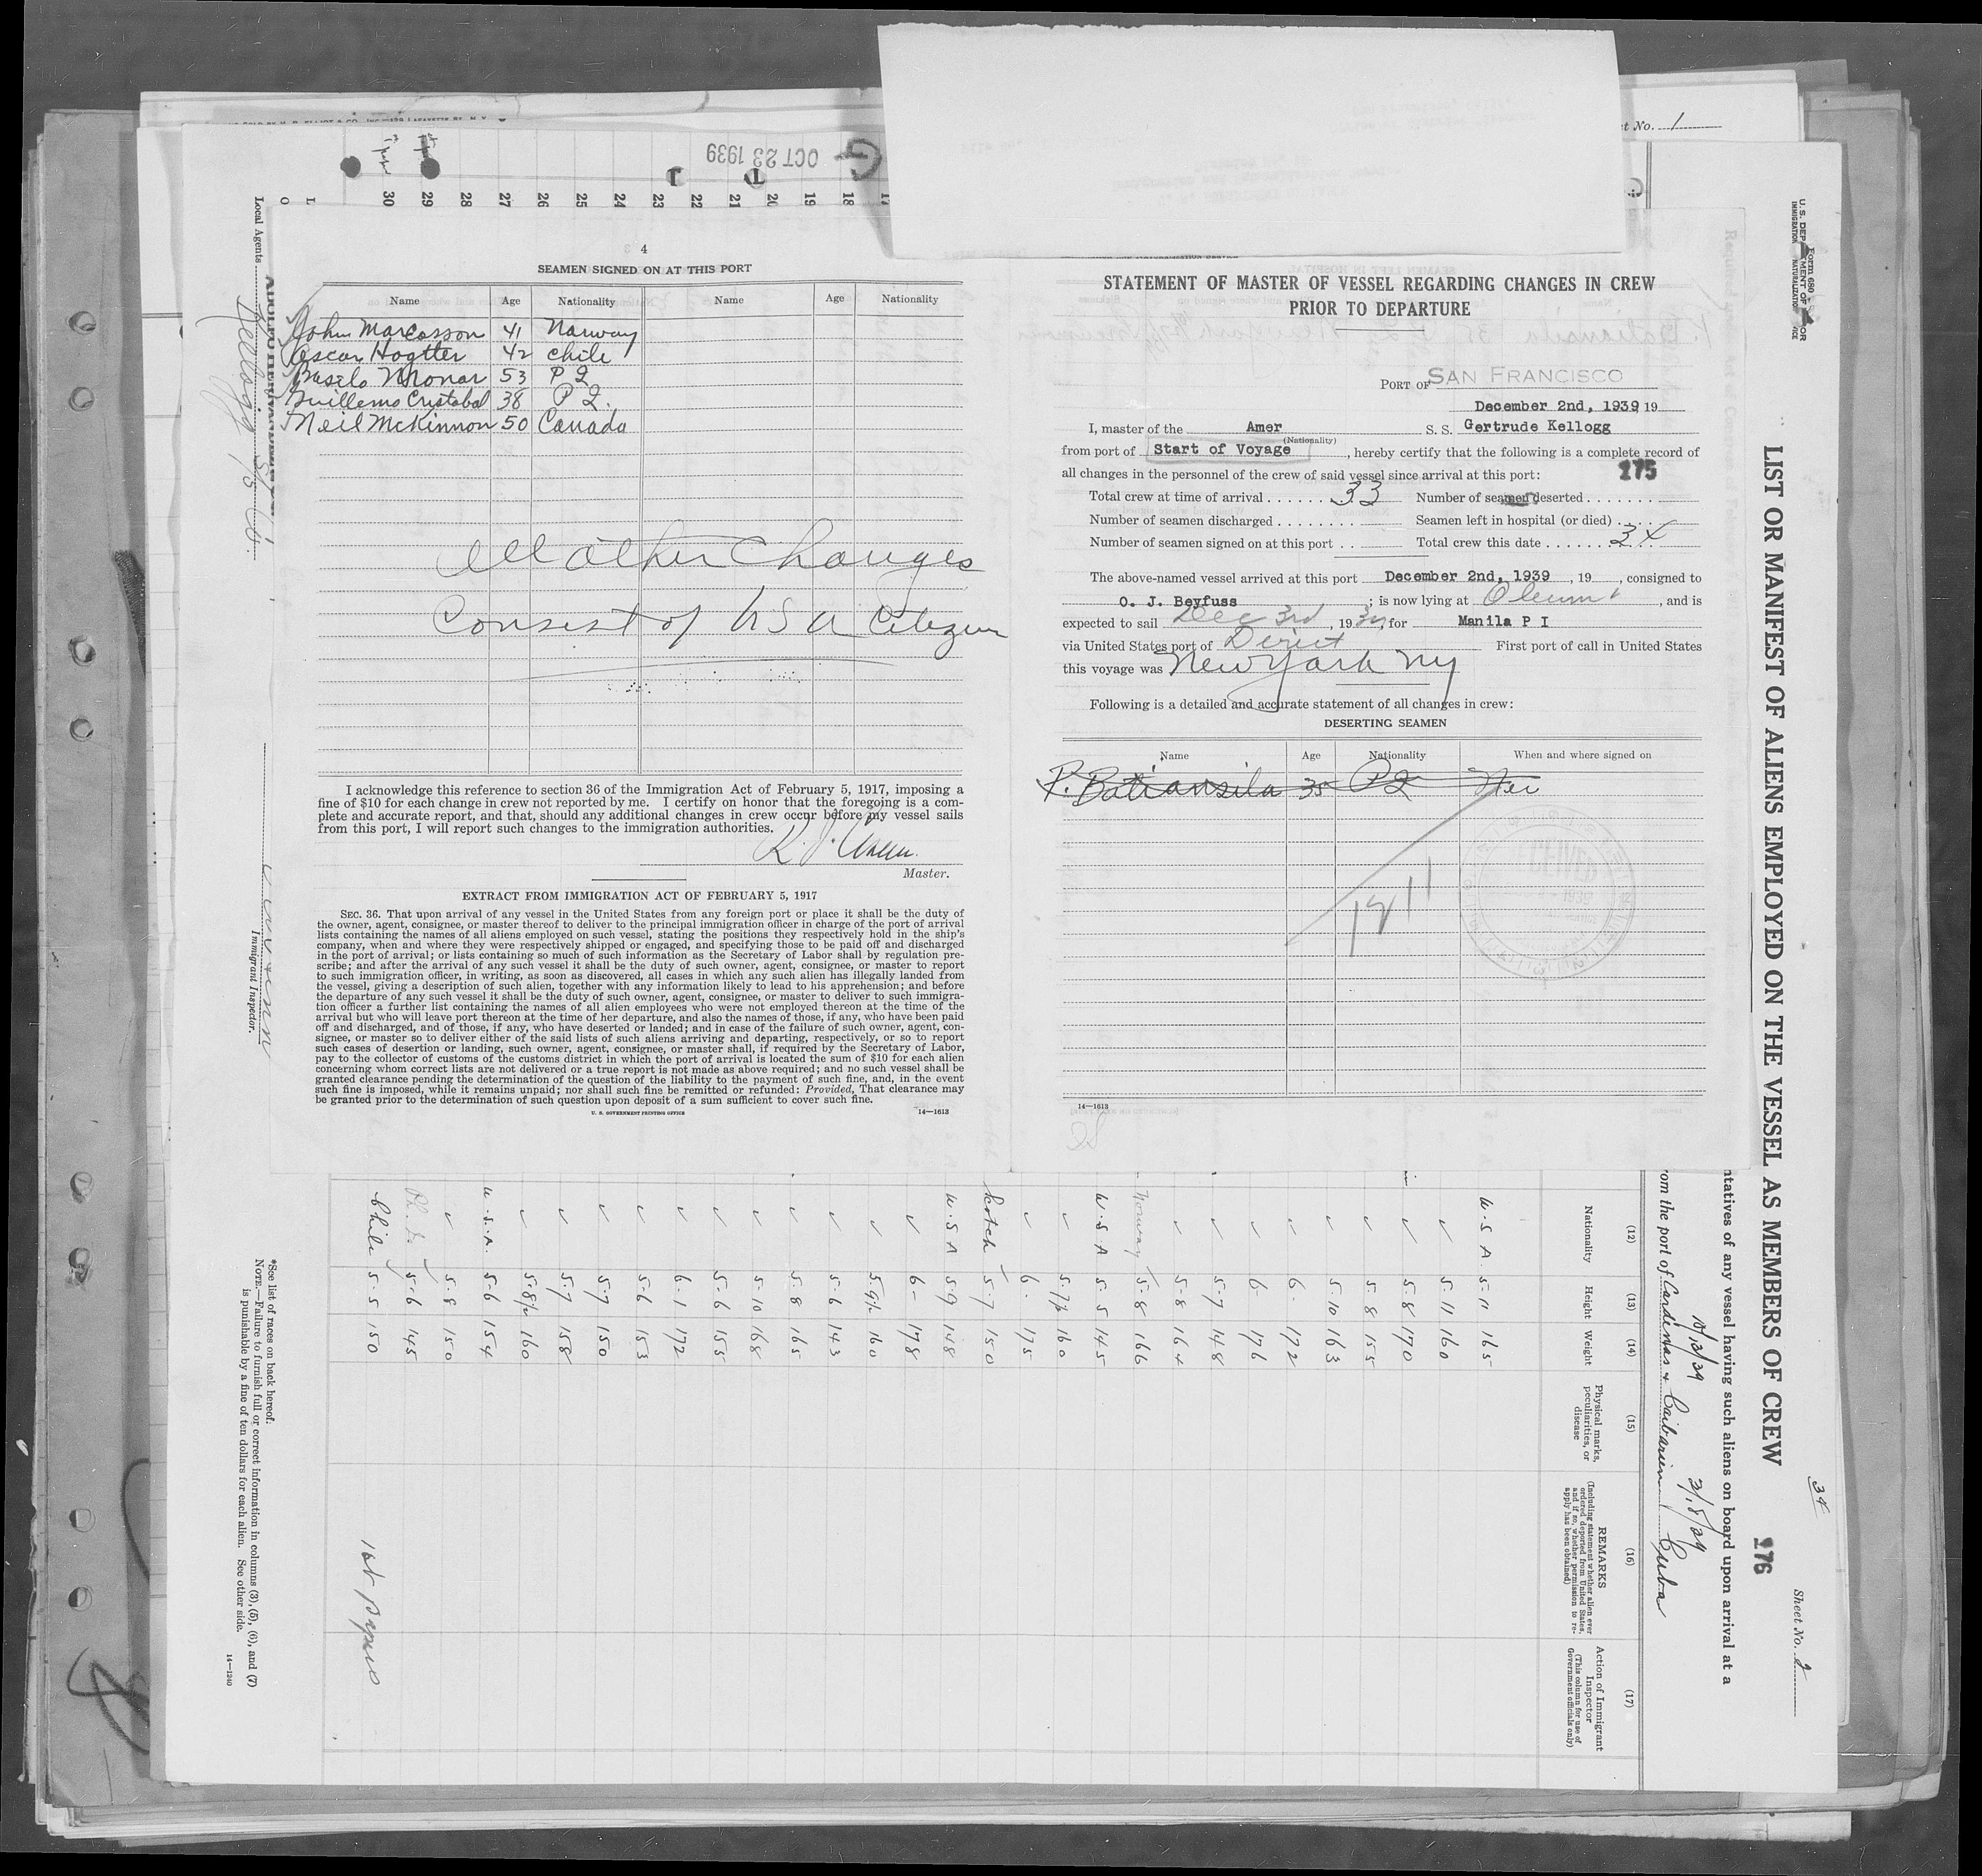 4
SEAMEN SIGNED ON AT THIS PORT
Name Age Nationality Name Age Nationality
John Marcosson 41 Norway
Oscar Hogtter 42 Chile
53 P I
Cristobal 38 P I.
Neil McKinnon 50 Canada
All other Changes
Consist of U S A Citizen
I acknowledge this reference to section 36 of the Immigration Act of February 5, 1917, imposing a
fine of $10 for each change in crew not reported by me. I certify on honor that the foregoing is a com-
plete and accurate report, and that, should any additional changes in crew occur before my vessel sails
from this port, I will report such changes to the immigration authorities.
Master.
EXTRACT FROM IMMIGRATION ACT OF FEBRUARY 5, 1917
SEC. 36. That upon arrival of any vessel in the United States from any foreign port or place it shall be the duty of
the owner, agent, consignee, or master thereof to deliver to the principal immigration officer in charge of the port of arrival
lists containing the names of all aliens employed on such vessel, stating the positions they respectively hold in the ship's
company, when and where they were respectively shipped or engaged, and specifying those to be paid off and discharged
in the port of arrival; or lists containing so much of such information as the Secretary of Labor shall by regulation pre-
scribe; and after the arrival of any such vessel it shall be the duty of such owner, agent, consignee, or master to report
to such immigration officer, in writing, as soon as discovered, all cases in which any such alien has illegally landed from
the vessel, giving a description of such alien, together with any information likely to lead to his apprehension; and before
the departure of any such vessel it shall be the duty of such owner, agent, consignee, or master to deliver to such immigra-
tion officer a further list containing the names of all alien employees who were not employed thereon at the time of the
arrival but who will leave port thereon at the time of her departure, and also the names of those, if any, who have been paid
off and discharged, and of those, if any, who have deserted or landed; and in case of the failure of such owner, agent, con-
signee, or master so to deliver either of the said lists of such aliens arriving and departing, respectively, or so to report
such cases of desertion or landing, such owner, agent, consignee, or master shall, if required by the Secretary of Labor,
pay to the collector of customs of the customs district in which the port of arrival is located the sum of $10 for each alien
concerning whom correct lists are not delivered or a true report is not made as above required; and no such vessel shall be
granted clearance pending the determination of the question of the liability to the payment of such fine, and, in the event
such fine is imposed, while it remains unpaid; nor shall such fine be remitted or refunded: Provided, That clearance may
be granted prior to the determination of such question upon deposit of a sum sufficient to cover such fine.
U. S. GOVERNMENT PRINTING OFFICE 14—1613
STATEMENT OF MASTER OF VESSEL REGARDING CHANGES IN CREW
PRIOR TO DEPARTURE
PORT OF SAN FRANCISCO
December 2nd, 1939 19
I, master of the Amer S. S. Gertrude Kellogg
(Nationality)
from port of Start of Voyage, hereby certify that the following is a complete record of
all changes in the personnel of the crew of said vessel since arrival at this port: 175
Total crew at time of arrival 33 Number of seamen deserted
Number of seamen discharged Seamen left in hospital (or died)
Number of seamen signed on at this port Total crew this date 34
The above-named vessel arrived at this port December 2nd, 1939, 19, consigned to
O. J. Beyfuss; is now lying at Oleum, and is
expected to sail Dec 3rd, 1939, for Manila P I
via United States port of Direct First port of call in United States
this voyage was New York NY
Following is a detailed and accurate statement of all changes in crew:
DESERTING SEAMEN
Name Age Nationality When and where signed on
P. Batiansila 35 P I
14—1613
OCT 23 1939
30 29 28 27 26 25 24 23 22 21 20 19 18 17
Local Agents
Kellogg
Immigrant Inspector.
t No. 1
Form 680
LIST OR MANIFEST OF ALIENS EMPLOYED ON THE VESSEL AS MEMBERS OF CREW
34
176
Sheet No. 2
ntatives of any vessel having such aliens on board upon arrival at a
om the port of Cardenas & Caibarien Cuba
(12) (13) (14) (15) (16) (17)
Nationality Height Weight
Physical marks, peculiarities, or disease
REMARKS
(Including statement whether alien ever ordered deported from United States, and if so, whether permission to re-apply has been obtained)
Action of Immigrant Inspector
(This column for use of Government officials only)
U.S A. 5-11 165
✓ 5-11 160
✓ 5-8 170
✓ 5-8 155
✓ 5-10 163
✓ 6- 172
✓ 6- 176
✓ 5-7 148
✓ 5-8 164
Norway 5-8 166
U.S A 5-5 145
✓ 5-7½ 160
✓ 6- 175
Scotch 5-7 150
U.S A 5-9 148
✓ 6- 178
✓ 5-9½ 160
✓ 5-6 143
✓ 5-8 165
✓ 5-10 168
✓ 5-6 155
✓ 6-1 172
✓ 5-6 153
✓ 5-7 150
✓ 5-7 158
✓ 5-8½ 160
U.S.A. 5-6 154
✓ 5-8 150
5-6 145
Chile 5-5 150
*See list of races on back hereof.
NOTE.—Failure to furnish full or correct information in columns (3), (5), (6), and (7)
is punishable by a fine of ten dollars for each alien. See other side.
14—1240